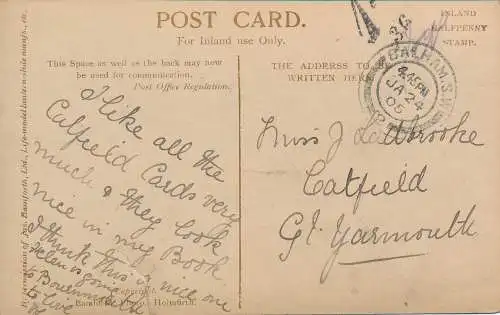 POST CARD.
For Inland use Only.
INLAND
HALFPENNY
STAMP.
This Space as well as the back may now
be used for communication.
Post Office Regulation.
THE ADDRESS TO BE
WRITTEN HERE
BALHAM. S.W.
8.45PM
JA 24
05
I like all the
Catfield Cards very
much & they look
nice in my Book
I think this a nice one
Helen is going
to Bournemouth
to live
Miss J Ladbrooke
Catfield
Gt Yarmouth
Copyright.
Bamforth, Photo., Holmfirth.
Bamforth, Ltd., Life-model lantern-slide manufrs., etc.